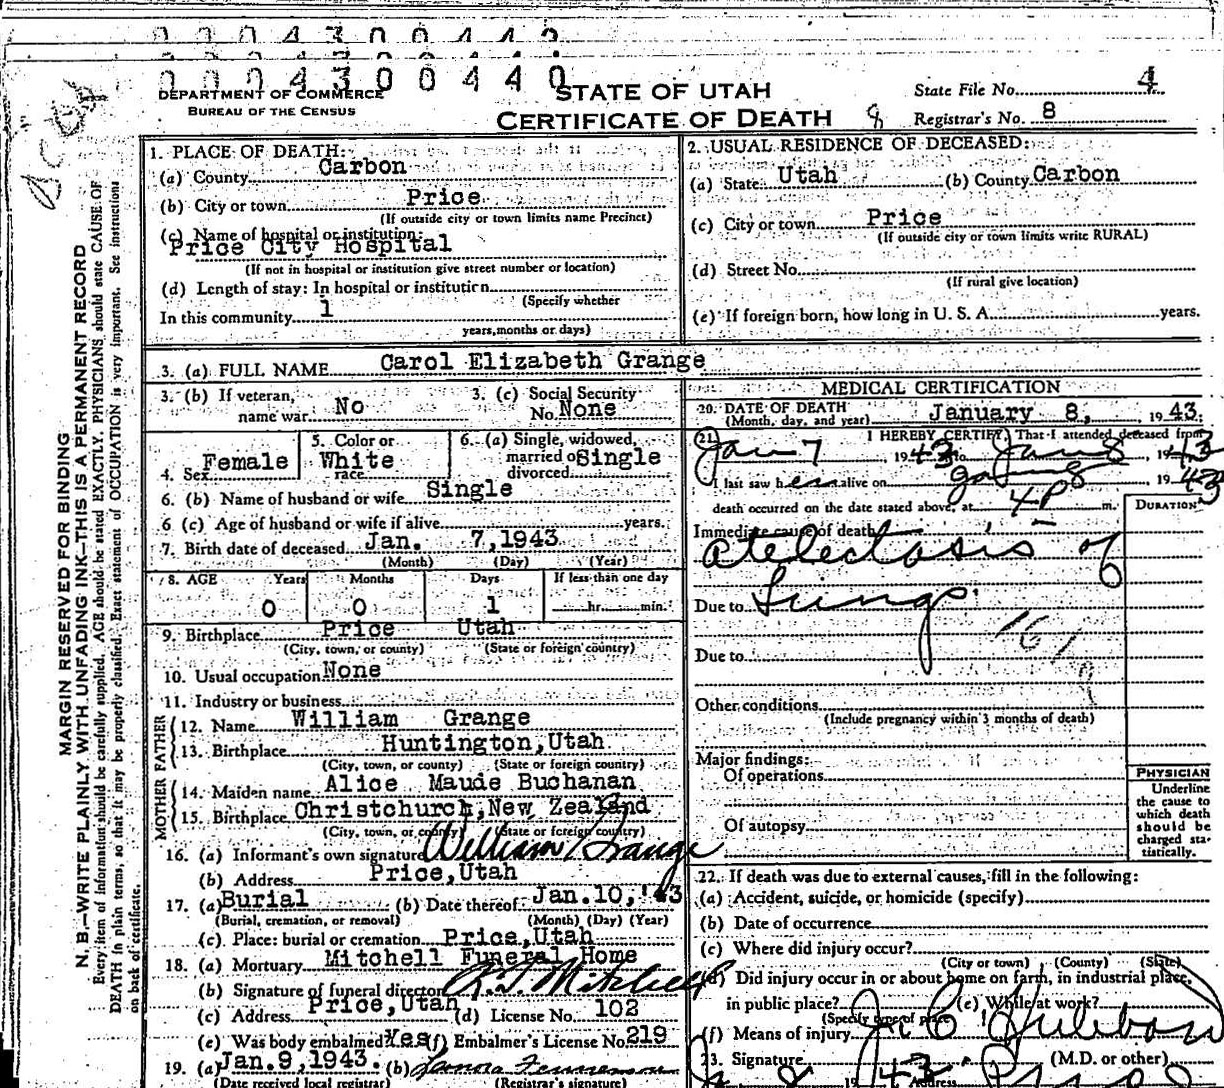 0004300440
DEPARTMENT OF COMMERCE
BUREAU OF THE CENSUS
STATE OF UTAH
CERTIFICATE OF DEATH
State File No. 4
Registrar's No. 8
8
MARGIN RESERVED FOR BINDING
N. B.—WRITE PLAINLY WITH UNFADING INK—THIS IS A PERMANENT RECORD
Every item of information should be carefully supplied. AGE should be stated EXACTLY. PHYSICIANS should state CAUSE OF
DEATH in plain terms, so that it may be properly classified. Exact statement of OCCUPATION is very important. See instructions
on back of certificate.
1. PLACE OF DEATH:
(a) County Carbon
(b) City or town Price
(If outside city or town limits name Precinct)
(c) Name of hospital or institution:
Price City Hospital
(If not in hospital or institution give street number or location)
(d) Length of stay: In hospital or institution
(Specify whether
In this community 1
years, months or days)
2. USUAL RESIDENCE OF DECEASED:
(a) State Utah (b) County Carbon
(c) City or town Price
(If outside city or town limits write RURAL)
(d) Street No.
(If rural give location)
(e) If foreign born, how long in U. S. A. years.
3. (a) FULL NAME Carol Elizabeth Grange
3. (b) If veteran,
name war No
3. (c) Social Security
No. None
4. Sex Female
5. Color or
race White
6. (a) Single, widowed,
married or
divorced Single
6. (b) Name of husband or wife Single
6 (c) Age of husband or wife if alive years.
7. Birth date of deceased Jan. 7, 1943
(Month) (Day) (Year)
8. AGE Years Months Days If less than one day
0 0 1 hr. min.
9. Birthplace Price Utah
(City, town, or county) (State or foreign country)
10. Usual occupation None
11. Industry or business
FATHER
12. Name William Grange
13. Birthplace Huntington, Utah
(City, town, or county) (State or foreign country)
MOTHER
14. Maiden name Alice Maude Buchanan
15. Birthplace Christchurch, New Zealand
(City, town, or county) (State or foreign country)
16. (a) Informant's own signature William Grange
(b) Address Price, Utah
17. (a) Burial (b) Date thereof Jan. 10, '43
(Burial, cremation, or removal) (Month) (Day) (Year)
(c) Place: burial or cremation Price, Utah
18. (a) Mortuary Mitchell Funeral Home
(b) Signature of funeral director Mitchell
(c) Address Price, Utah (d) License No. 102
(e) Was body embalmed? Yes (f) Embalmer's License No. 219
19. (a) Jan. 9, 1943. (b)
(Date received local registrar) (Registrar's signature)
MEDICAL CERTIFICATION
20. DATE OF DEATH
(Month, day, and year) January 8, 1943.
21. I HEREBY CERTIFY, That I attended deceased from
Jan 7 1943 to Jan 8, 1943
I last saw her alive on Jan 8 1943
death occurred on the date stated above, at 4 P m.
DURATION
Immediate cause of death
atelectasis of
Due to Lungs
Due to
Other conditions
(Include pregnancy within 3 months of death)
Major findings:
Of operations
Of autopsy
PHYSICIAN
Underline
the cause to
which death
should be
charged sta-
tistically.
22. If death was due to external causes, fill in the following:
(a) Accident, suicide, or homicide (specify)
(b) Date of occurrence
(c) Where did injury occur?
(City or town) (County) (State)
(d) Did injury occur in or about home on farm, in industrial place,
in public place? (e) While at work?
(Specify type of place)
(f) Means of injury
23. Signature J. C. Hubbard (M.D. or other)
8 1943 Address Price